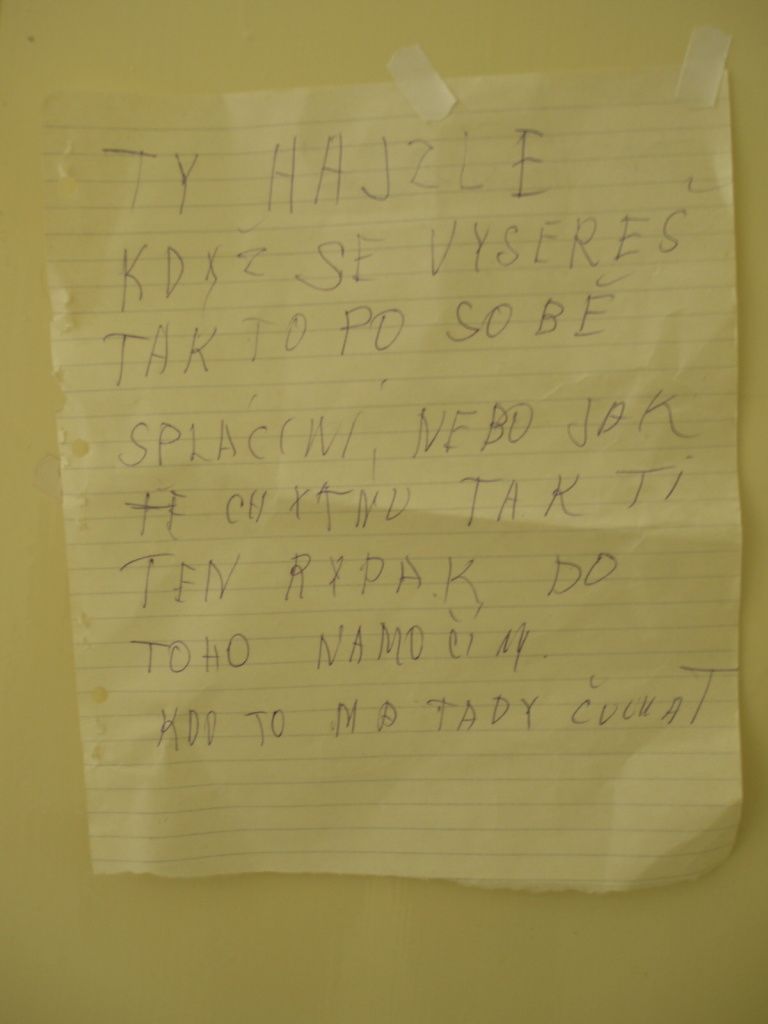 TY HAJZLE
KDYŽ SE VYSEREŠ
TAK TO PO SOBĚ
SPLÁCÍNÍ, NEBO JAK
TĚ CHYTNU TAK TI
TEN RYPAK DO
TOHO NAMOČIM.
KDO TO MA TADY ČUCHAT